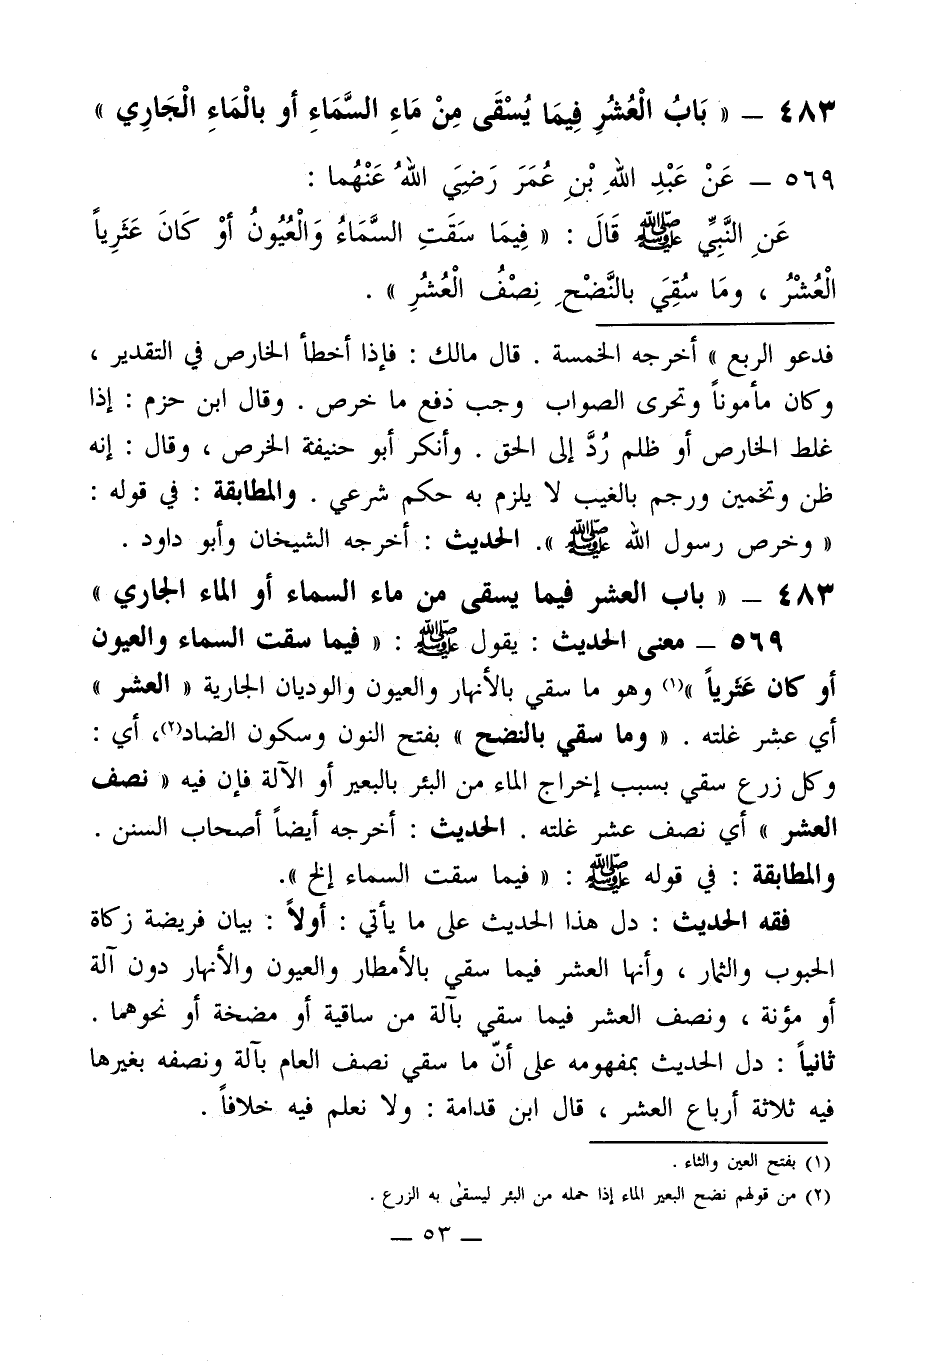 ٤٨٣ – « بَابُ الْعُشُرِ فِيمَا يُسْقَى مِنْ مَاءِ السَّمَاءِ أو بالْمَاءِ الْجَارِي »
٥٦٩ – عَنْ عَبْدِ اللهِ بْنِ عُمَرَ رَضِيَ اللهُ عَنْهُما :
عَنِ النَّبِّي ﷺ قَالَ : « فِيمَا سَقَتِ السَّمَاءُ وَالْعُيُونُ أوْ كَانَ عَثَرِياً
الْعُشْرُ ، ومَا سُقِيَ بالنَّضْحِ نِصْفُ الْعُشُرِ » .
فدعو الربع » أخرجه الخمسة . قال مالك : فإذا أخطأ الخارص في التقدير ،
وكان مأموناً وتحرى الصواب وجب دفع ما خرص . وقال ابن حزم : إذا
غلط الخارص أو ظلم رُدَّ إلى الحق . وأنكر أبو حنيفة الخرص ، وقال : إنه
ظن وتخمين ورجم بالغيب لا يلزم به حكم شرعي . والمطابقة : في قوله :
« وخرص رسول الله ﷺ ». الحديث : أخرجه الشيخان وأبو داود .
٤٨٣ – « باب العشر فيما يسقى من ماء السماء أو الماء الجاري »
٥٦٩ – معنى الحديث : يقول ﷺ : « فيما سقت السماء والعيون
أو كان عَثَرياً »(١) وهو ما سقي بالأنهار والعيون والوديان الجارية « العشر »
أي عشر غلته . « وما سقي بالنضح » بفتح النون وسكون الضاد(٢)، أي :
وكل زرع سقي بسبب إخراج الماء من البئر بالبعير أو الآلة فإن فيه « نصف
العشر » أي نصف عشر غلته . الحديث : أخرجه أيضاً أصحاب السنن .
والمطابقة : في قوله ﷺ : « فيما سقت السماء إلخ ».
فقه الحديث : دل هذا الحديث على ما يأتي : أولاً : بيان فريضة زكاة
الحبوب والثمار ، وأنها العشر فيما سقي بالأمطار والعيون والأنهار دون آلة
أو مؤنة ، ونصف العشر فيما سقي بآلة من ساقية أو مضخة أو نحوهما .
ثانياً : دل الحديث بمفهومه على أنّ ما سقي نصف العام بآلة ونصفه بغيرها
فيه ثلاثة أرباع العشر ، قال ابن قدامة : ولا نعلم فيه خلافاً .
(١) بفتح العين والثاء .
(٢) من قولهم نضح البعير الماء إذا حمله من البئر ليسقى به الزرع .
– ٥٣ –